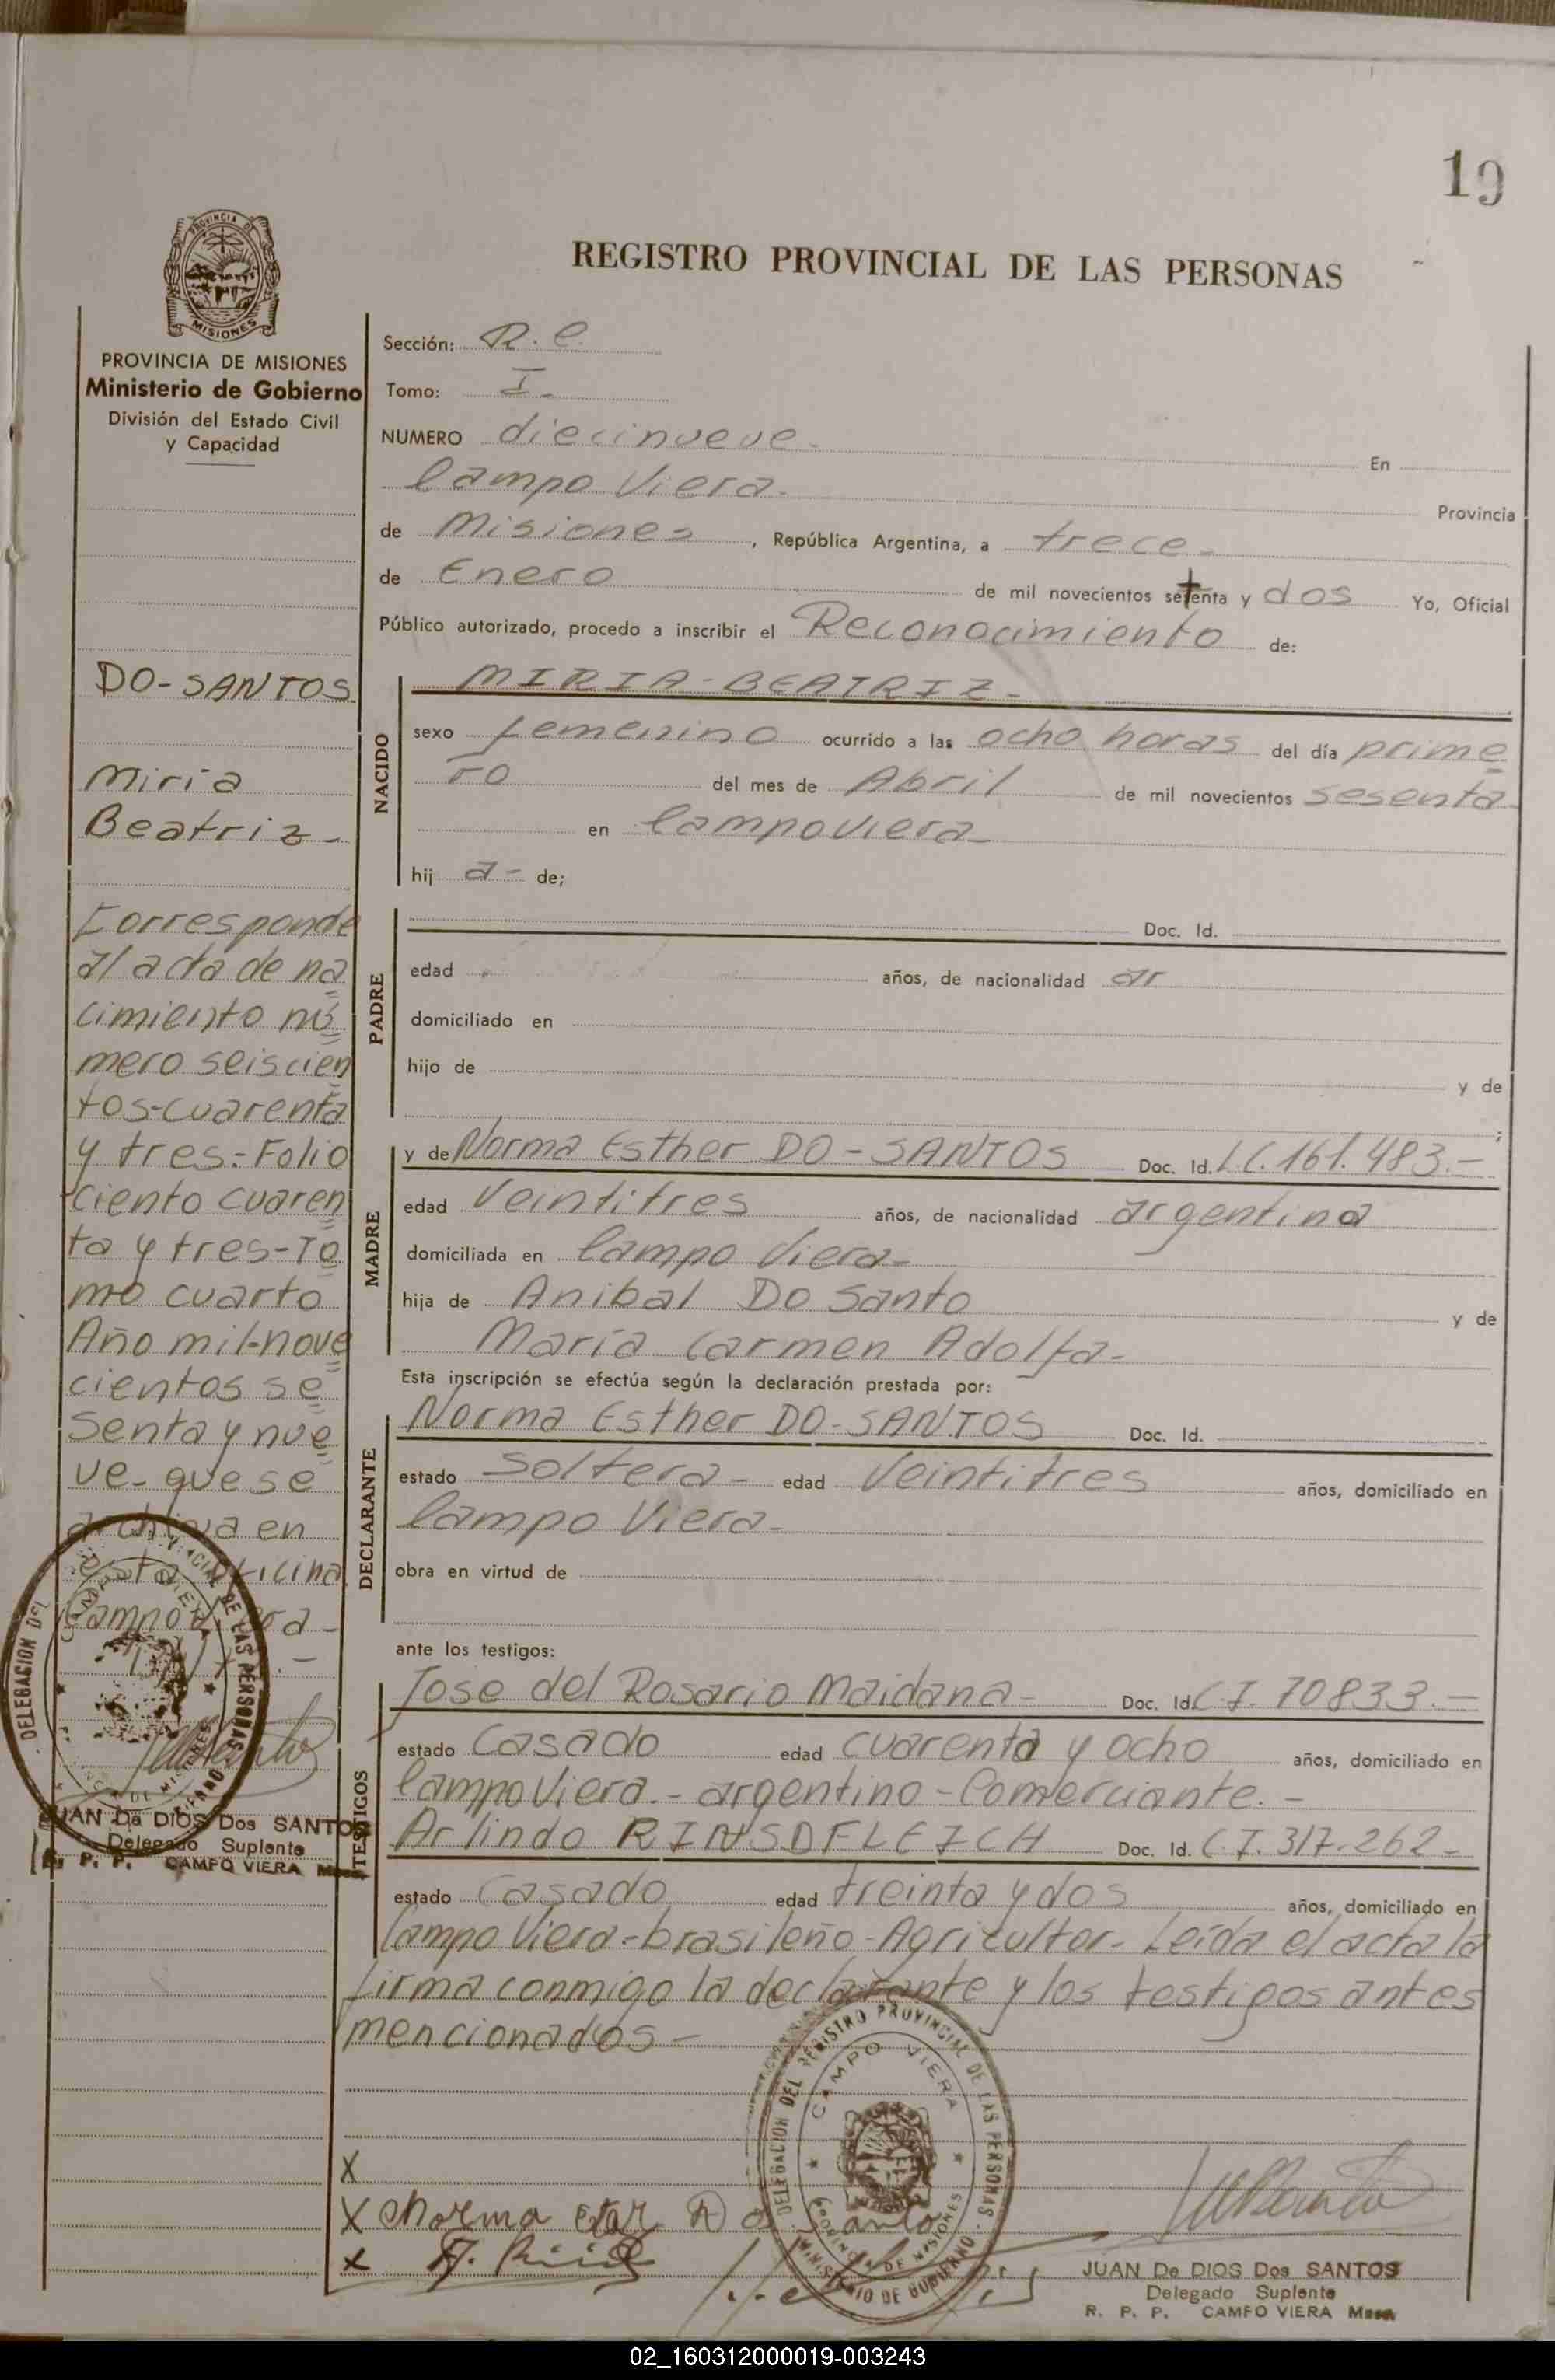 19
REGISTRO PROVINCIAL DE LAS PERSONAS
PROVINCIA DE
MISIONES
PROVINCIA DE MISIONES
Ministerio de Gobierno
División del Estado Civil
y Capacidad
Sección: R. C.
Tomo: I.
NUMERO diecinueve- En
Campo Viera- Provincia
de Misiones, República Argentina, a trece-
de Enero de mil novecientos setenta y dos Yo, Oficial
Público autorizado, procedo a inscribir el Reconocimiento de:
DO-SANTOS
Miria
Beatriz-
Corresponde
al acta de na
cimiento nú
mero seiscien
tos-cuarenta
y tres-Folio
ciento cuaren
ta y tres-To
mo cuarto
Año mil-nove
cientos se
senta y nue
ve- que se
archiva en
esta oficina
Campo Viera-
JUAN De DIOS Dos SANTOS
Delegado Suplente
R. P. P. CAMPO VIERA
NACIDO
MIRIA-BEATRIZ-
sexo femenino ocurrido a las ocho horas del día prime
ro del mes de Abril de mil novecientos sesenta-
en Campo Viera-
hij a- de;
PADRE
Doc. Id.
edad años, de nacionalidad ar
domiciliado en
hijo de y de
;
MADRE
y de Norma Esther DO-SANTOS Doc. Id. LC. 161.483.-
edad Veintitres años, de nacionalidad argentina
domiciliada en Campo Viera-
hija de Anibal Do Santo y de
María Carmen Adolfa-
Esta inscripción se efectúa según la declaración prestada por:
DECLARANTE
Norma Esther DO-SANTOS Doc. Id.
estado Soltera- edad Veintitres años, domiciliado en
Campo Viera-
obra en virtud de
ante los testigos:
TESTIGOS
Jose del Rosario Maidana- Doc. Id. C.I. 70833.-
estado Casado edad cuarenta y ocho años, domiciliado en
Campo Viera.- argentino-Comerciante.-
Arlindo RINSDFLEICH Doc. Id. C.I. 317.262-
estado Casado edad treinta y dos años, domiciliado en
Campo Viera-brasileño-Agricultor- Leída el acta la
firma conmigo la declarante y los testigos antes
mencionados-
DELEGACION DEL REGISTRO PROVINCIAL DE LAS PERSONAS
CAMPO VIERA
PROVINCIA DE MISIONES
MINISTERIO DE GOBIERNO
X
X Norma Do Santo
X
JUAN De DIOS Dos SANTOS
Delegado Suplente
R. P. P. CAMPO VIERA
02_160312000019-003243